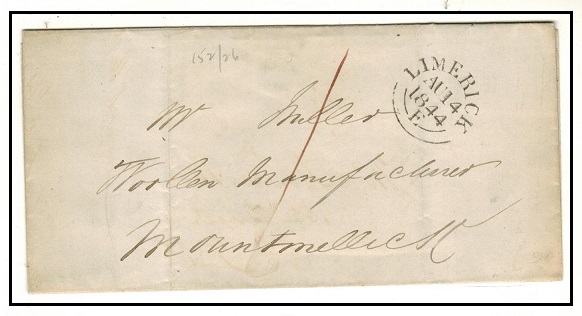 152/26
LIMERICK
AU 14
1844
E
Mr Miller
Woollen Manufacturer
Mountmellick